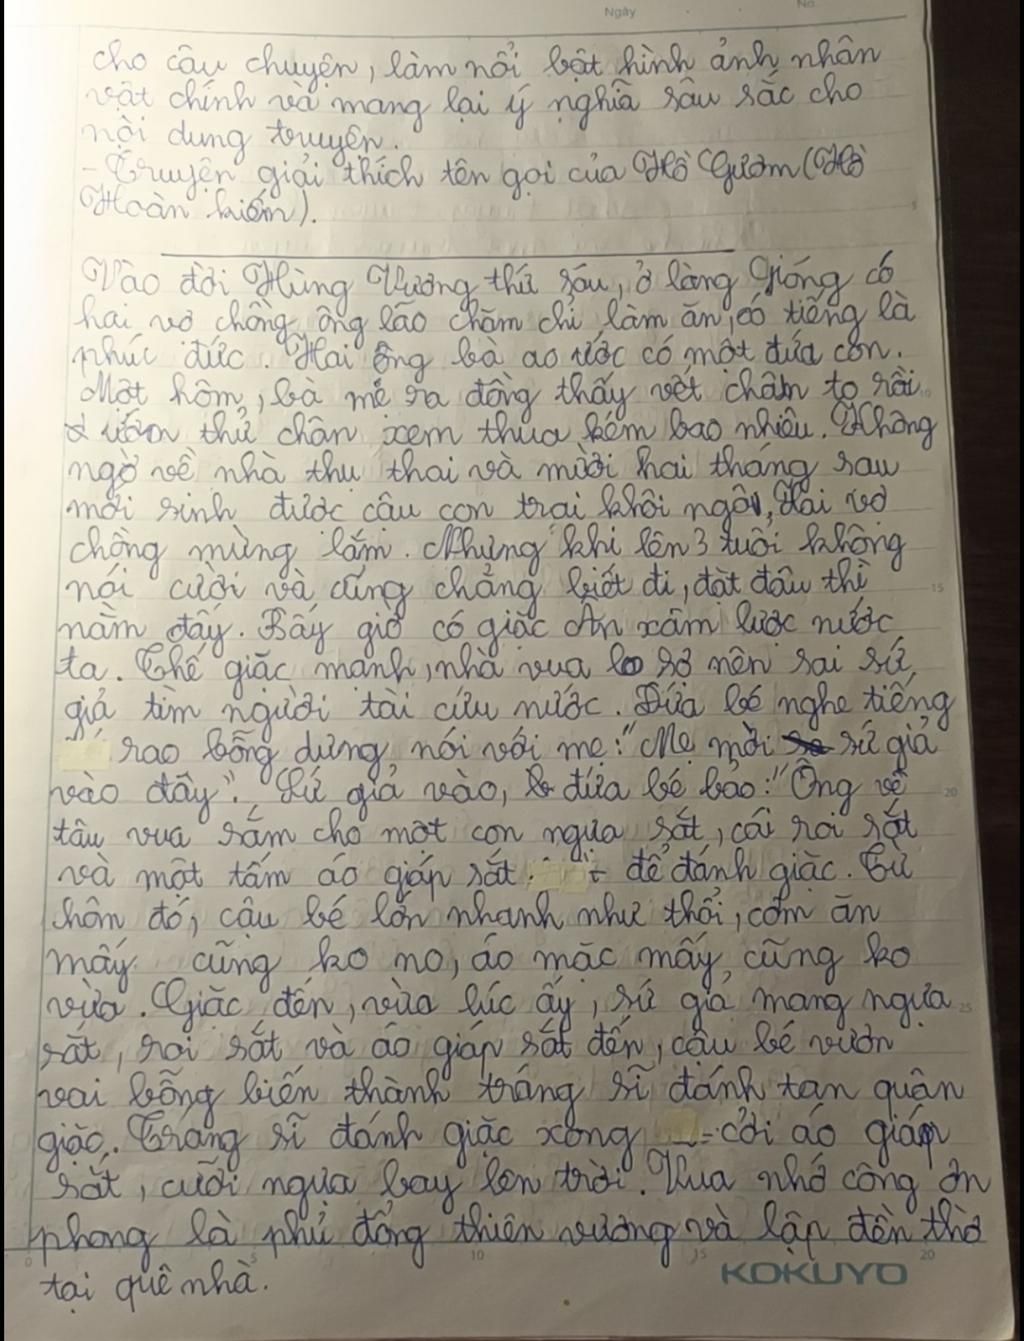 Ngày
No.
cho câu chuyện, làm nổi bật hình ảnh nhân
vật chính và mang lại ý nghĩa sâu sắc cho
nội dung truyện.
- Truyện giải thích tên gọi của Hồ Gươm (Hồ
Hoàn kiếm).
Vào đời Hùng Vương thứ sáu, ở làng Gióng có
hai vợ chồng ông lão chăm chỉ làm ăn, có tiếng là
phúc đức. Hai ông bà ao ước có một đứa con.
Một hôm, bà mẹ ra đồng thấy vết chân to rồi
ướm thử chân xem thua kém bao nhiêu. Không
ngờ về nhà thụ thai và mười hai tháng sau
mới sinh được cậu con trai khôi ngô, Hai vợ
chồng mừng lắm. Nhưng khi lên 3 tuổi không
nói cười và cũng chẳng biết đi, đặt đâu thì
nằm đấy. Bấy giờ có giặc Ân xâm lược nước
ta. Thế giặc mạnh, nhà vua lo sợ nên sai sứ
giả tìm người tài cứu nước. Đứa bé nghe tiếng
rao bỗng dưng nói với mẹ: "Mẹ mời sứ giả
vào đây". Sứ giả vào, đứa bé bảo: "Ông về
tâu vua sắm cho một con ngựa sắt, cái roi sắt
và một tấm áo giáp sắt để đánh giặc. Từ
hôm đó, cậu bé lớn nhanh như thổi, cơm ăn
mấy cũng ko no, áo mặc mấy cũng ko
vừa. Giặc đến, vừa lúc ấy, sứ giả mang ngựa
sắt, roi sắt và áo giáp sắt đến, cậu bé vươn
vai bỗng biến thành tráng sĩ đánh tan quân
giặc. Tráng sĩ đánh giặc xong cởi áo giáp
sắt, cưỡi ngựa bay lên trời. Vua nhớ công ơn
phong là phù đổng thiên vương và lập đền thờ
tại quê nhà.
KOKUYO